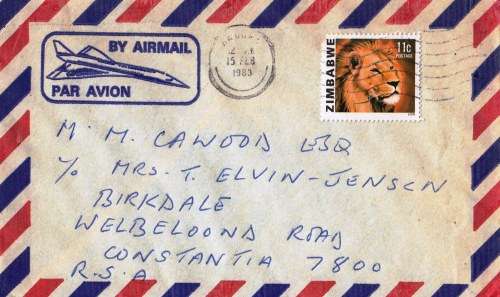 BY AIRMAIL
PAR AVION
15 FEB
1983
ZIMBABWE
11c
POSTAGE
M. M. CAWOOD ESQ
c/o MRS. T. ELVIN-JENSEN
BIRKDALE
WELBELOOND ROAD
CONSTANTIA 7800
R.S.A